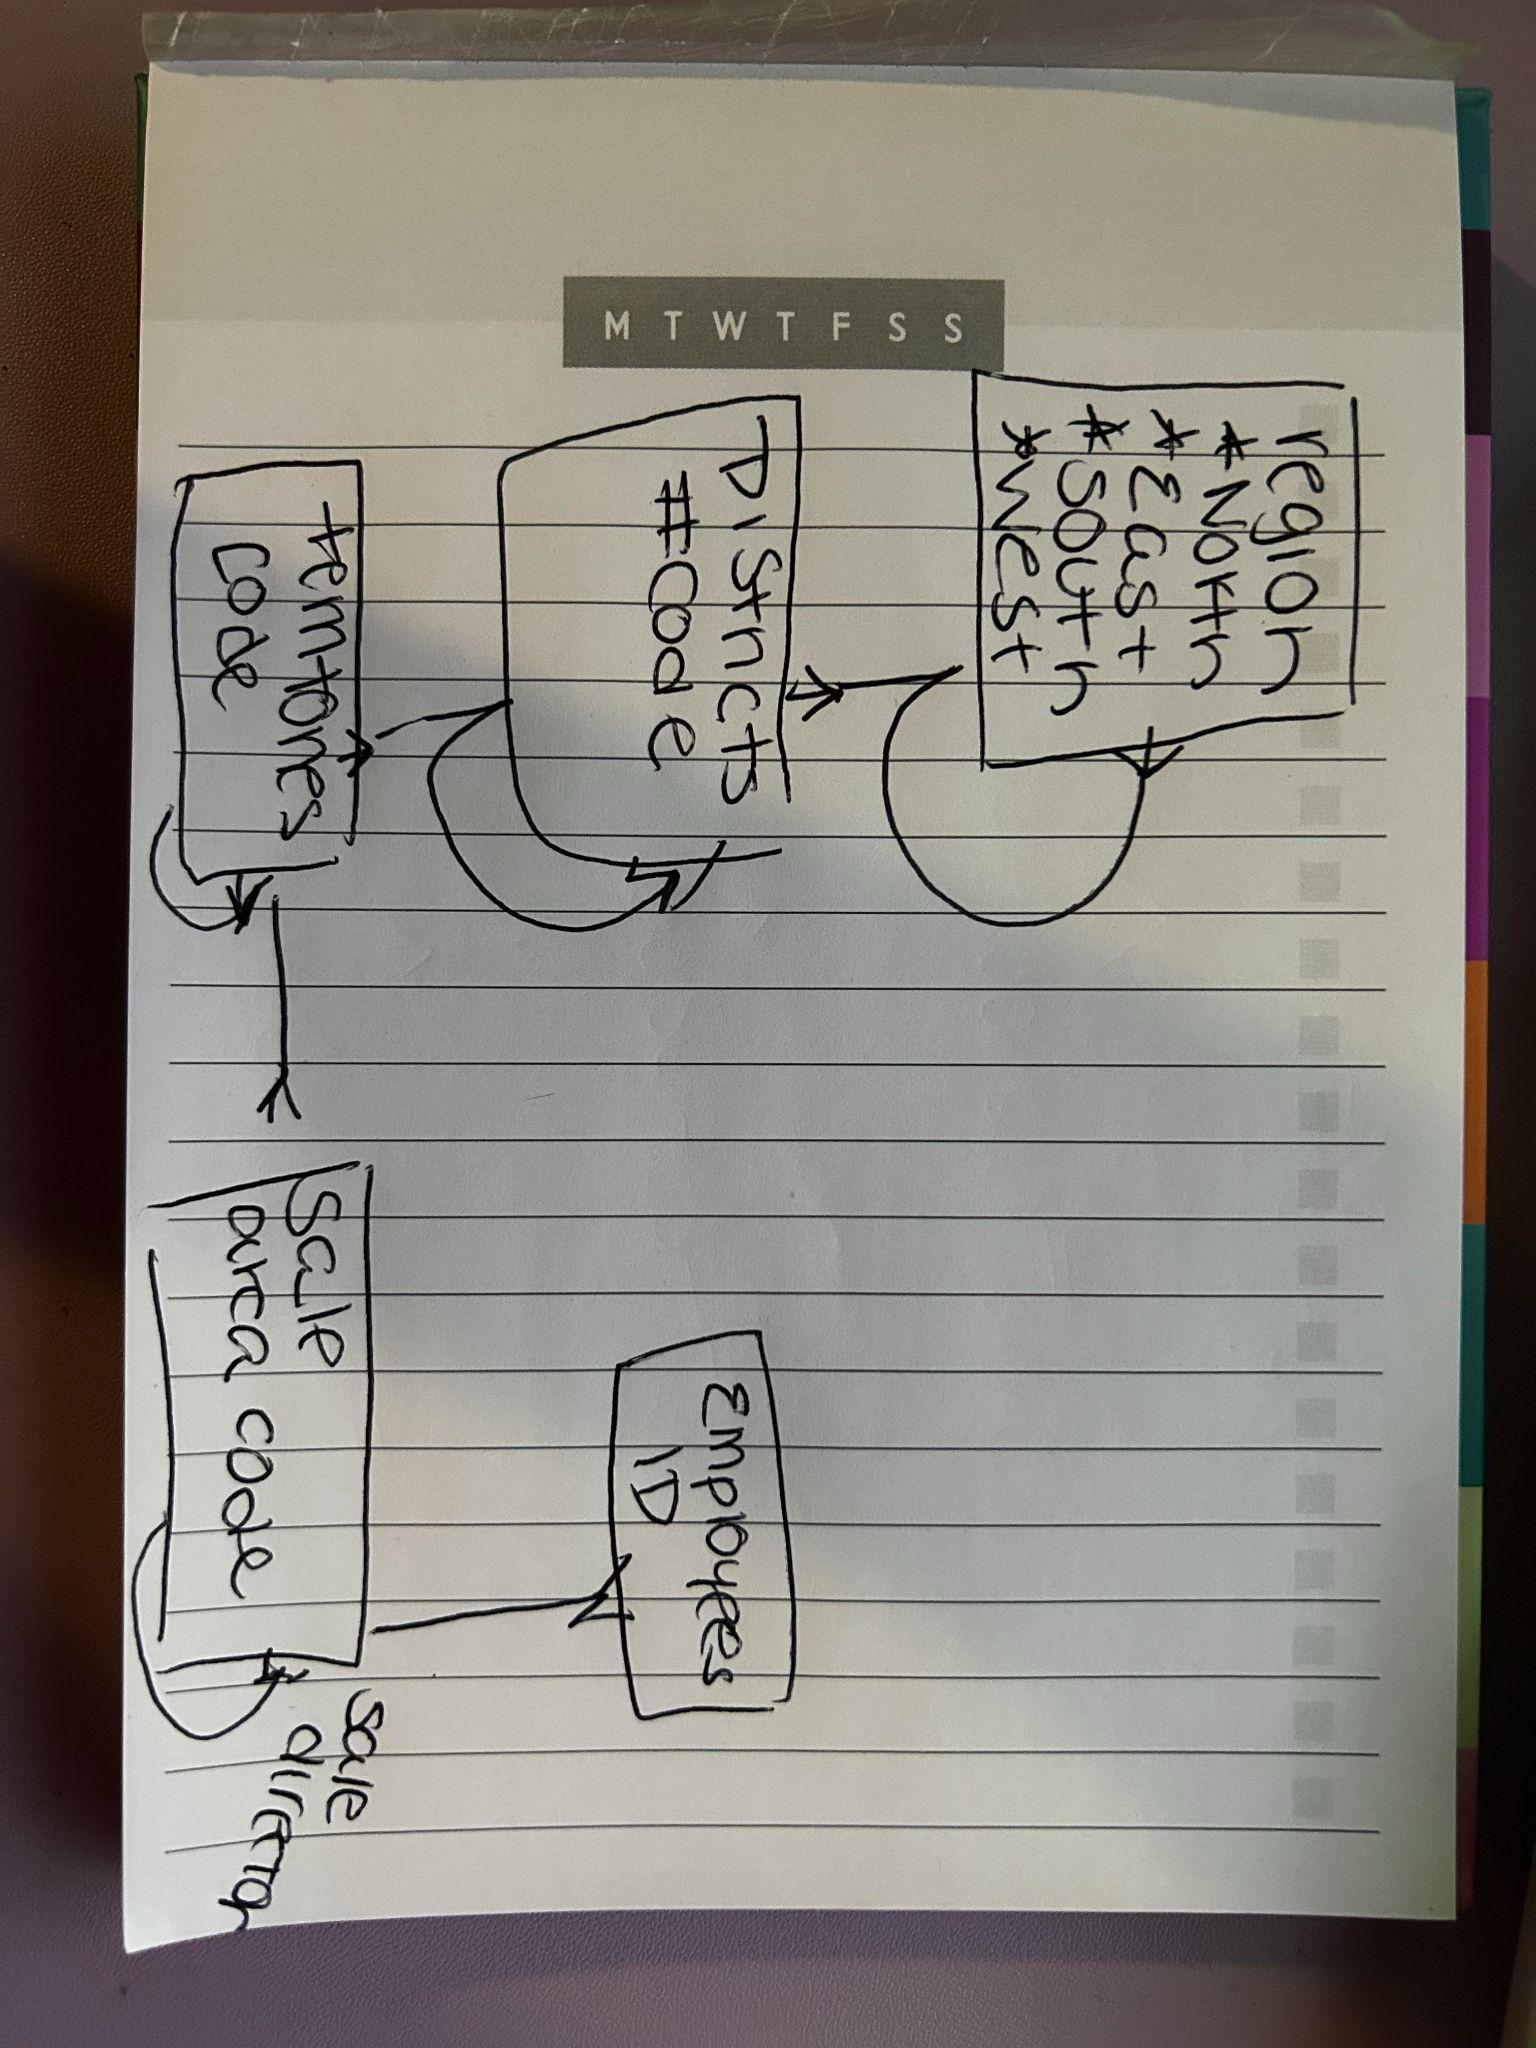 M T W T F S S
region
* North
* East
* South
* West
Districts
#code
territories
code
Sale
area code
Employees
ID
sale
director